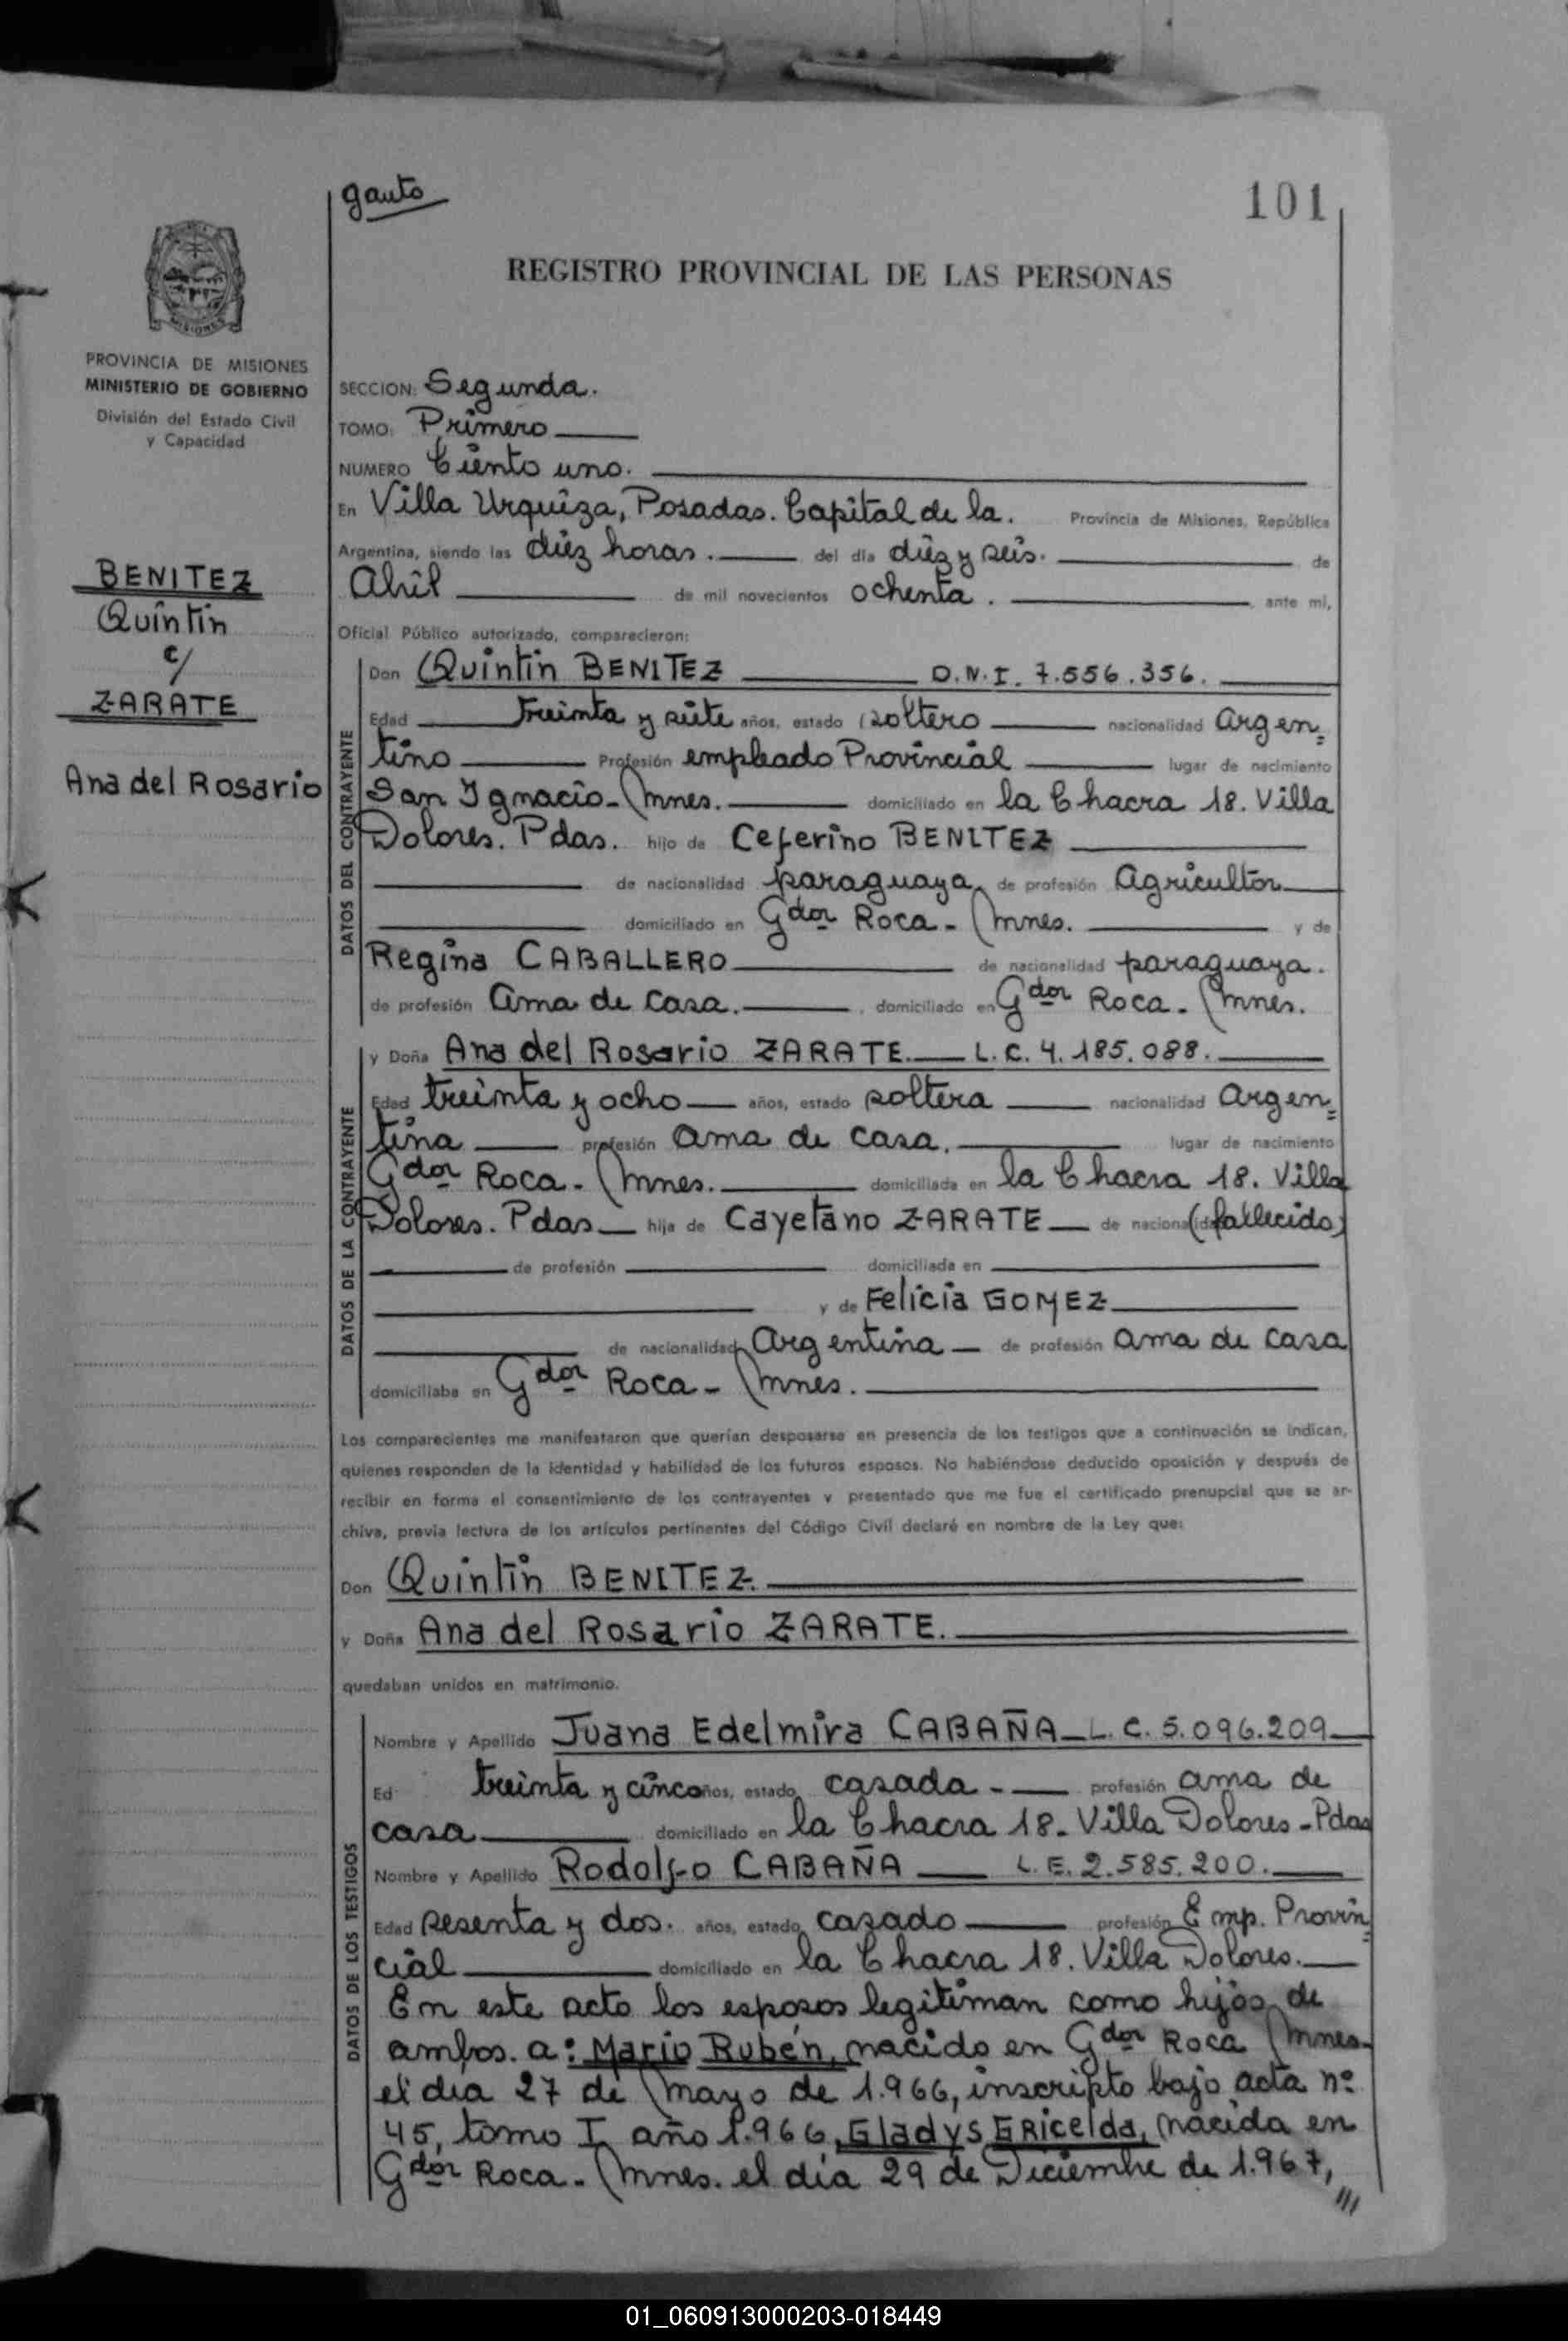 gauto
101
REGISTRO PROVINCIAL DE LAS PERSONAS
MISIONES
PROVINCIA DE MISIONES
MINISTERIO DE GOBIERNO
División del Estado Civil
y Capacidad
BENITEZ
Quintin
c/
ZARATE
Ana del Rosario
SECCION: Segunda.
TOMO: Primero
NUMERO Ciento uno.
En Villa Urquiza, Posadas. Capital de la. Provincia de Misiones, República
Argentina, siendo las diez horas. del día diez y seis. de
Abril de mil novecientos ochenta. , ante mí,
Oficial Público autorizado, comparecieron:
DATOS DEL CONTRAYENTE
Don Quintin BENITEZ D.N.I. 7.556.356.
Edad treinta y siete años, estado soltero nacionalidad Argen=
tino Profesión empleado Provincial lugar de nacimiento
San Ignacio - Mnes. domiciliado en la Chacra 18. Villa
Dolores. Pdas. hijo de Ceferino BENITEZ
de nacionalidad paraguaya, de profesión Agricultor
domiciliado en Gdor Roca - Mnes. y de
Regina CABALLERO de nacionalidad paraguaya.
de profesión ama de casa. , domiciliado en Gdor Roca - Mnes.
DATOS DE LA CONTRAYENTE
y Doña Ana del Rosario ZARATE. L.C. 4.185.088.
Edad treinta y ocho años, estado soltera nacionalidad Argen=
tina profesión ama de casa. lugar de nacimiento
Gdor Roca - Mnes. domiciliada en la Chacra 18. Villa
Dolores. Pdas hija de Cayetano ZARATE de nacionalidad (fallecido)
de profesión domiciliada en
y de Felicia GOMEZ
de nacionalidad Argentina de profesión ama de casa
domiciliaba en Gdor Roca - Mnes.
Los comparecientes me manifestaron que querían desposarse en presencia de los testigos que a continuación se indican,
quienes responden de la identidad y habilidad de los futuros esposos. No habiéndose deducido oposición y después de
recibir en forma el consentimiento de los contrayentes y presentado que me fue el certificado prenupcial que se ar-
chiva, previa lectura de los artículos pertinentes del Código Civil declaré en nombre de la Ley que:
Don Quintin BENITEZ.
y Doña Ana del Rosario ZARATE.
quedaban unidos en matrimonio.
DATOS DE LOS TESTIGOS
Nombre y Apellido Juana Edelmira CABAÑA L.C. 5.096.209
Ed treinta y cinco años, estado casada - profesión ama de
casa domiciliado en la Chacra 18. Villa Dolores - Pdas
Nombre y Apellido Rodolfo CABAÑA L.E. 2.585.200.
Edad sesenta y dos. años, estado casado profesión Emp. Provin=
cial domiciliado en la Chacra 18. Villa Dolores.
En este acto los esposos legitiman como hijos de
ambos. a: Mario Rubén, nacido en Gdor Roca Mnes.
el dia 27 de mayo de 1.966, inscripto bajo acta nº
45, tomo I año 1.966, Gladys GRicelda, nacida en
Gdor Roca - Mnes. el día 29 de Diciembre de 1.967,
///
01_060913000203-018449